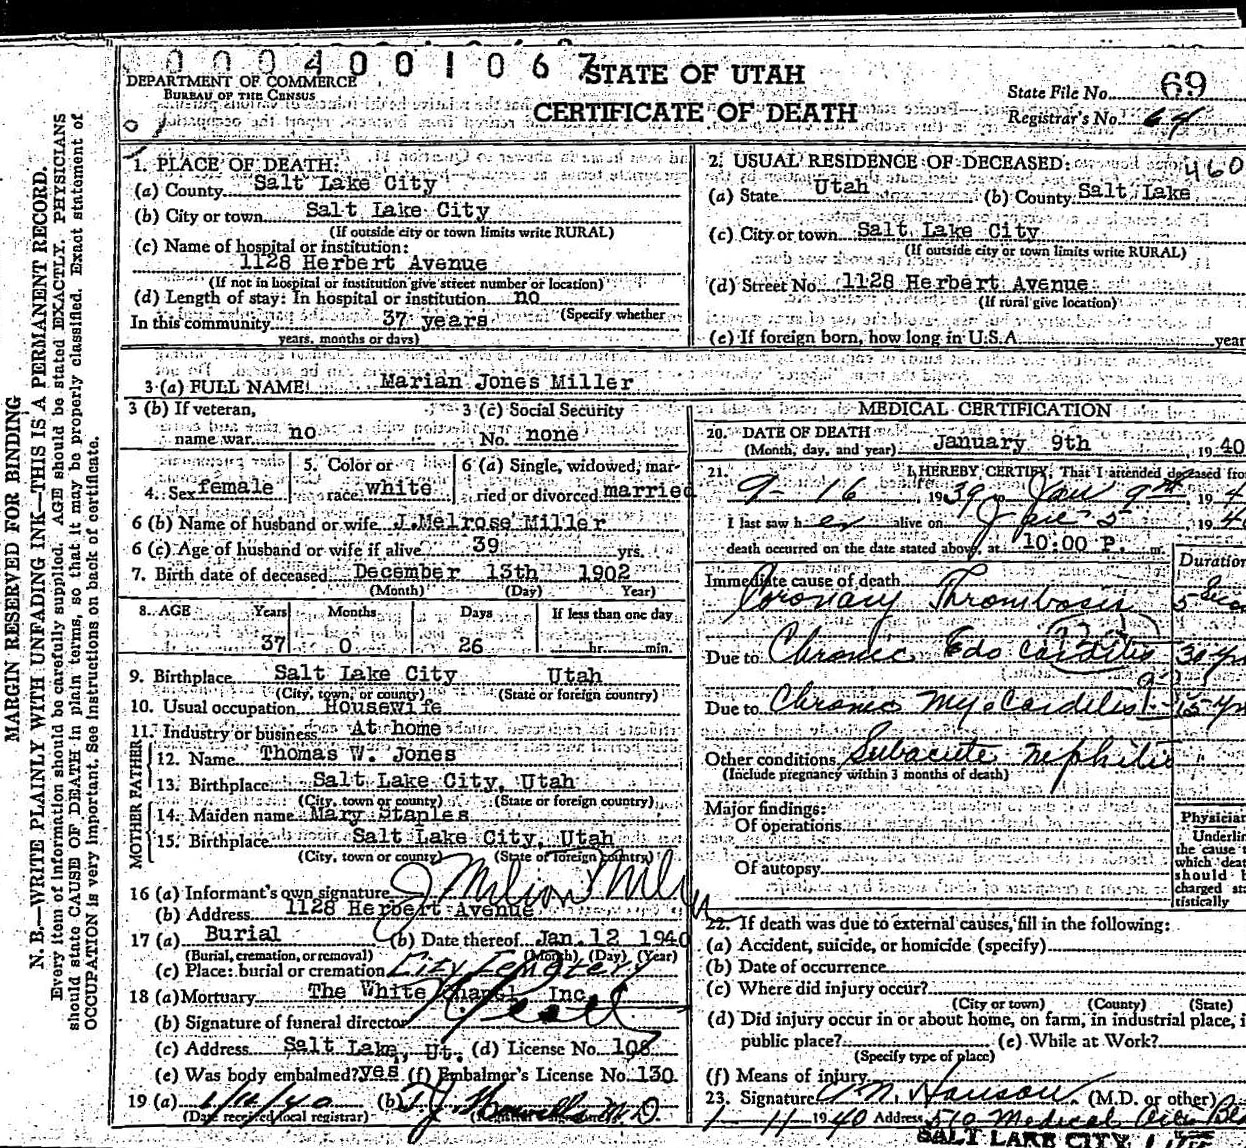 0004001067
DEPARTMENT OF COMMERCE
BUREAU OF THE CENSUS
STATE OF UTAH
CERTIFICATE OF DEATH
State File No. 69
Registrar's No. 64
MARGIN RESERVED FOR BINDING
N. B.—WRITE PLAINLY WITH UNFADING INK—THIS IS A PERMANENT RECORD.
Every item of information should be carefully supplied. AGE should be stated EXACTLY. PHYSICIANS
should state CAUSE OF DEATH in plain terms, so that it may be properly classified. Exact statement of
OCCUPATION is very important. See instructions on back of certificate.
1. PLACE OF DEATH:
(a) County Salt Lake City
(b) City or town Salt Lake City
(If outside city or town limits write RURAL)
(c) Name of hospital or institution:
1128 Herbert Avenue
(If not in hospital or institution give street number or location)
(d) Length of stay: In hospital or institution no
(Specify whether
In this community 37 years
years, months or days)
2. USUAL RESIDENCE OF DECEASED: 460
(a) State Utah (b) County Salt Lake
(c) City or town Salt Lake City
(If outside city or town limits write RURAL)
(d) Street No. 1128 Herbert Avenue
(If rural give location)
(e) If foreign born, how long in U.S.A. year
3 (a) FULL NAME Marian Jones Miller
3 (b) If veteran, 3 (c) Social Security
name war no No. none
4. Sex female 5. Color or race white 6 (a) Single, widowed, married or divorced married
6 (b) Name of husband or wife J. Melrose Miller
6 (c) Age of husband or wife if alive 39 yrs.
7. Birth date of deceased December 13th 1902
(Month) (Day) Year)
8. AGE Years Months Days If less than one day
37 0 26 hr. min.
9. Birthplace Salt Lake City Utah
(City, town, or county) (State or foreign country)
10. Usual occupation Housewife
11. Industry or business At home
FATHER
12. Name Thomas W. Jones
13. Birthplace Salt Lake City, Utah
(City, town or county) (State or foreign country)
MOTHER
14. Maiden name Mary Staples
15. Birthplace Salt Lake City, Utah
(City, town or county) (State or foreign country)
16 (a) Informant's own signature J
(b) Address 1128 Herbert Avenue
17 (a) Burial (b) Date thereof Jan. 12 1940
(Burial, cremation, or removal) (Month) (Day) (Year)
(c) Place: burial or cremation City Cemetery
18 (a) Mortuary The White Chapel Inc
(b) Signature of funeral director
(c) Address Salt Lake, Ut. (d) License No. 108
(e) Was body embalmed? yes (f) Embalmer's License No. 130
19 (a) (b)
(Date received local registrar)
MEDICAL CERTIFICATION
20. DATE OF DEATH
(Month, day, and year) January 9th, 1940
21. I HEREBY CERTIFY, That I attended deceased from
9-16 1939 to Jan 9th, 194
I last saw her alive on Jan 5, 194
death occurred on the date stated above, at 10:00 P. m.
Duration
Immediate cause of death
Coronary Thrombosis 5
Due to Chronic Edo carditis 30 yrs
Due to Chronic Myocarditis 15 yrs
Other conditions Subacute nephitis
(Include pregnancy within 3 months of death)
Major findings:
Of operations
Of autopsy
Physician
Underline
the cause
which death
should b
charged sta
tistically
22. If death was due to external causes, fill in the following:
(a) Accident, suicide, or homicide (specify)
(b) Date of occurrence
(c) Where did injury occur?
(City or town) (County) (State)
(d) Did injury occur in or about home, on farm, in industrial place, i
public place? (e) While at Work?
(Specify type of place)
(f) Means of injury
23. Signature M. Hanson (M.D. or other)
1-11-1940 Address 510 Medical
SALT LAKE CITY,